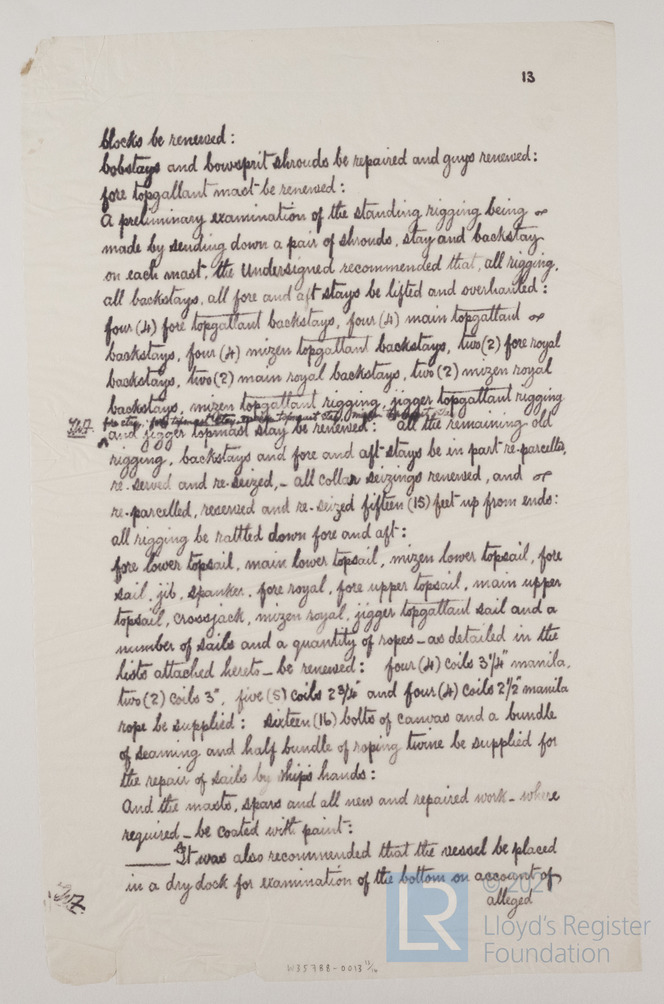 13
blocks be renewed:
bobstays and bowsprit shrouds be repaired and guys renewed:
fore topgallant mast be renewed:
A preliminary examination of the standing rigging being
made by sending down a pair of shrouds, stay and backstay
on each mast, the Undersigned recommended that, all rigging,
all backstays, all fore and aft stays be lifted and overhauled:
four (4) fore topgallant backstays, four (4) main topgallant
backstays, four (4) mizen topgallant backstays, two (2) fore royal
backstays, two (2) main royal backstays, two (2) mizen royal
backstays, mizen topgallant rigging, jigger topgallant rigging
fore stay, fore topmast stay,
and jigger topmast stay be renewed: all the remaining old
rigging, backstays and fore and aft stays be in part re-parcelled,
re-served and re-seized, - all collar seizings renewed, and
re-parcelled, reserved and re-seized fifteen (15) feet up from ends:
all rigging be rattled down fore and aft:
fore lower topsail, main lower topsail, mizen lower topsail, fore
sail, jib, spanker, fore royal, fore upper topsail, main upper
topsail, crossjack, mizen royal, jigger topgallant sail and a
number of sails and a quantity of ropes - as detailed in the
lists attached hereto - be renewed: four (4) coils 3 1/4" manila,
two (2) coils 3", five (5) coils 2 3/4" and four (4) coils 2 1/2" manila
rope be supplied: sixteen (16) bolts of canvas and a bundle
of seaming and half bundle of roping twine be supplied for
the repair of sails by ships hands:
And the masts, spars and all new and repaired work - where
required - be coated with paint:
It was also recommended that the vessel be placed
in a dry dock for examination of the bottom on account of
alleged
LR
Lloyd's Register
Foundation
W35788-0013